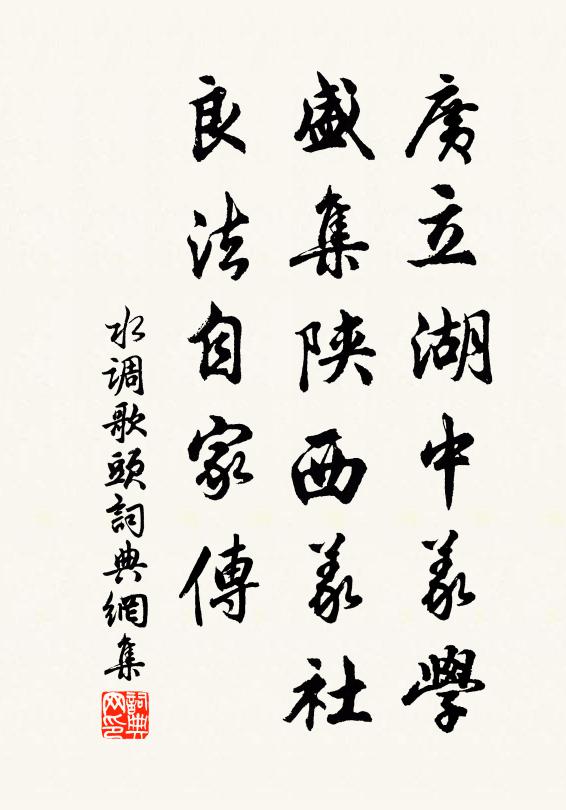 廣立湖中義學
盛集陝西義社
良法自家傳
水调歌頭詞典網集
詞典網印